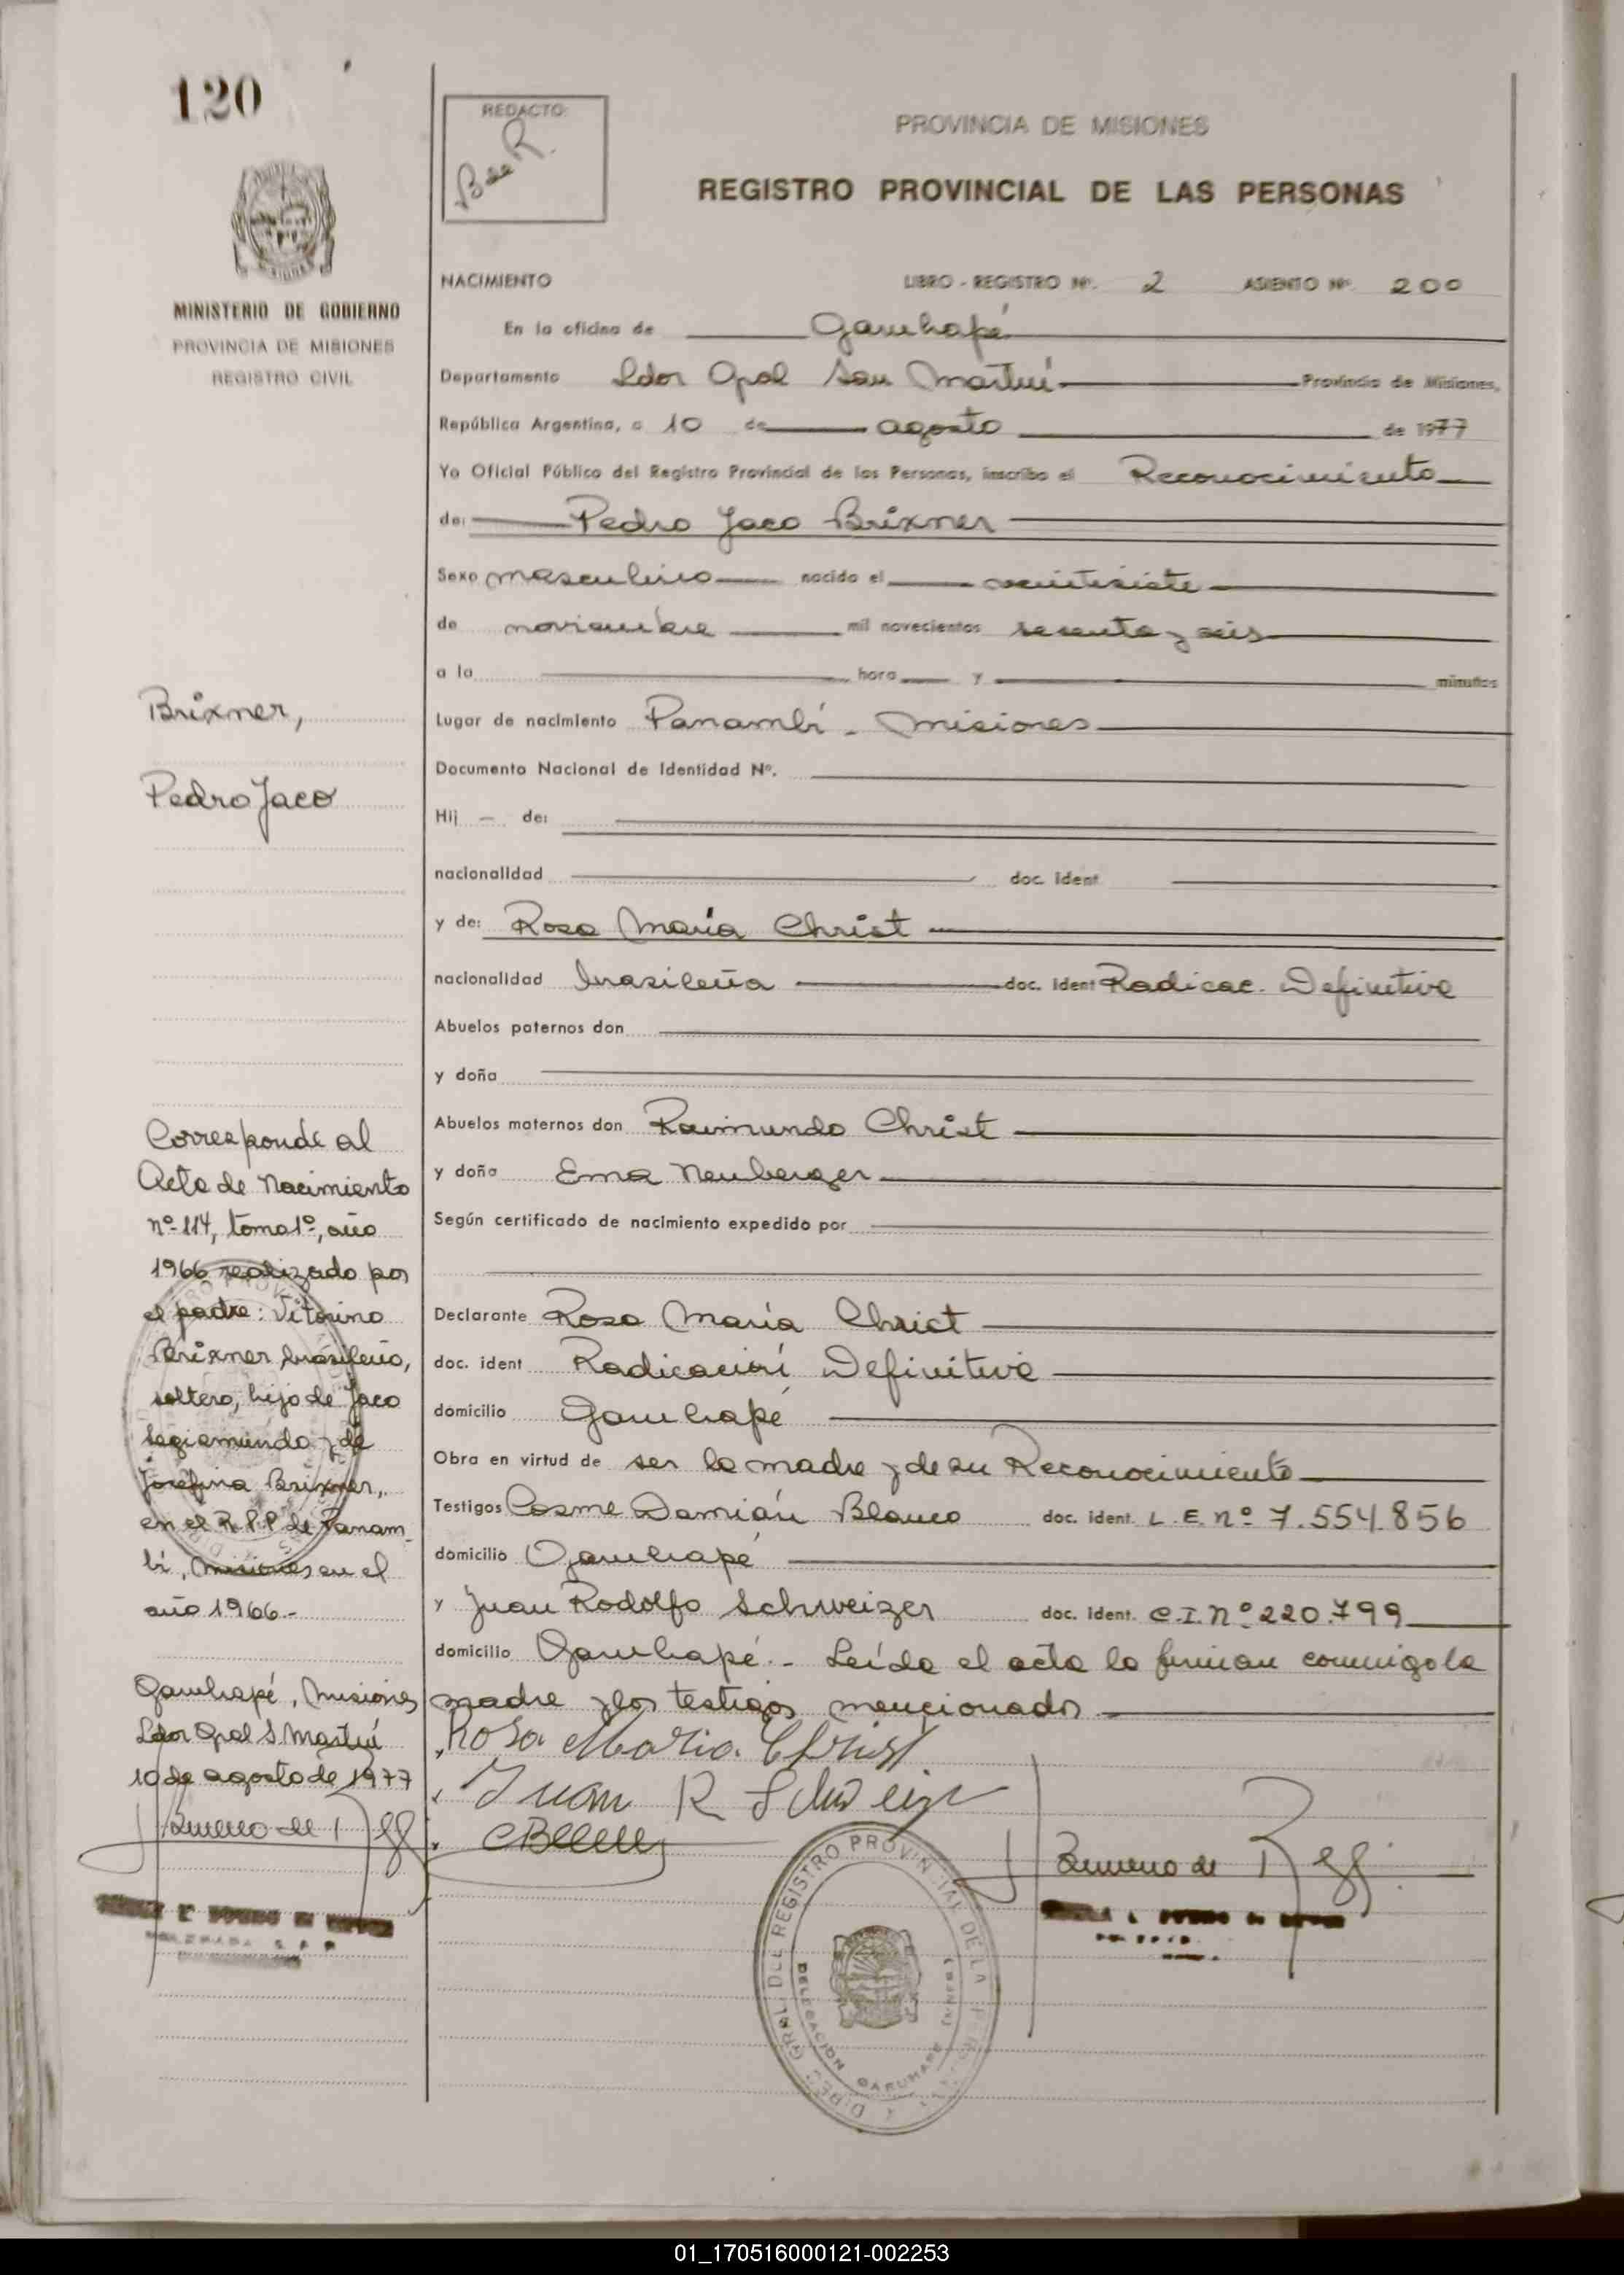 120
REDACTO:
B de R.
PROVINCIA DE MISIONES
REGISTRO PROVINCIAL DE LAS PERSONAS
MINISTERIO DE GOBIERNO
PROVINCIA DE MISIONES
REGISTRO CIVIL
NACIMIENTO LIBRO - REGISTRO Nº. 2 ASIENTO Nº. 200
En la oficina de Garuhapé
Departamento Ldor Gral San Martín Provincia de Misiones,
República Argentina, a 10 de agosto de 1977
Yo Oficial Público del Registro Provincial de las Personas, inscribo el Reconocimiento
de: Pedro Jaco Brixner
Sexo masculino nacido el veintisiete
de noviembre mil novecientos sesenta y seis
a la hora y minutos
Lugar de nacimiento Panambí - Misiones
Documento Nacional de Identidad Nº.
Hij - de:
nacionalidad doc. ident
y de: Rosa María Christ
nacionalidad brasileña doc. ident Radicac. Definitiva
Abuelos paternos don
y doña
Abuelos maternos don Raimundo Christ
y doña Ema Neuberger
Según certificado de nacimiento expedido por
Declarante Rosa María Christ
doc. ident Radicación Definitiva
domicilio Garuhapé
Obra en virtud de ser la madre y de su Reconocimiento
Testigos Cosme Damián Blanco doc. ident. L.E. nº 7.554.856
domicilio Garuhapé
y Juan Rodolfo Schweizer doc. ident. C.I. Nº 220.799
domicilio Garuhapé.- Leída el acta la firman conmigo la
madre y los testigos mencionados
Rosa Maria Christ
Juan R Schweizer
Brixner,
Pedro Jaco
Corresponde al
Acta de Nacimiento
nº 114, tomo 1º, año
1966 realizado por
el padre: Vitorino
Brixner brasileño,
soltero, hijo de Jaco
Segismundo y de
Josefina Brixner,
en el R.P.P de Panam-
bí, Misiones en el
año 1966.-
Garuhapé, Misiones
Ldor Gral S. Martín
10 de agosto de 1977
DIREC. GRAL. DEL REGISTRO PROVINCIAL DE LA
DELEGACION GARUHAPE
(MISIONES)
01_170516000121-002253